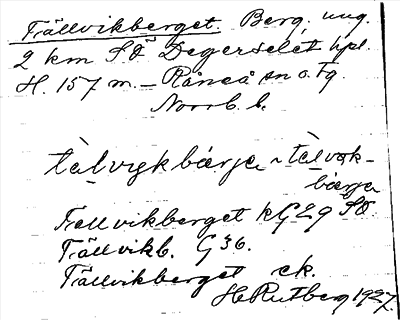 Trällvikberget. Berg, ung.
2 km SÖ Degerselet hpl.
H. 157 m. – Råneå sn o. tg.
Norrb. l.
tèlvɩkbærjə ~ tèlvək-
bærjə
Trällvikberget kG29 SÖ.
Trällvikb. G36.
Trällvikberget ek.
H Rutberg 1927.